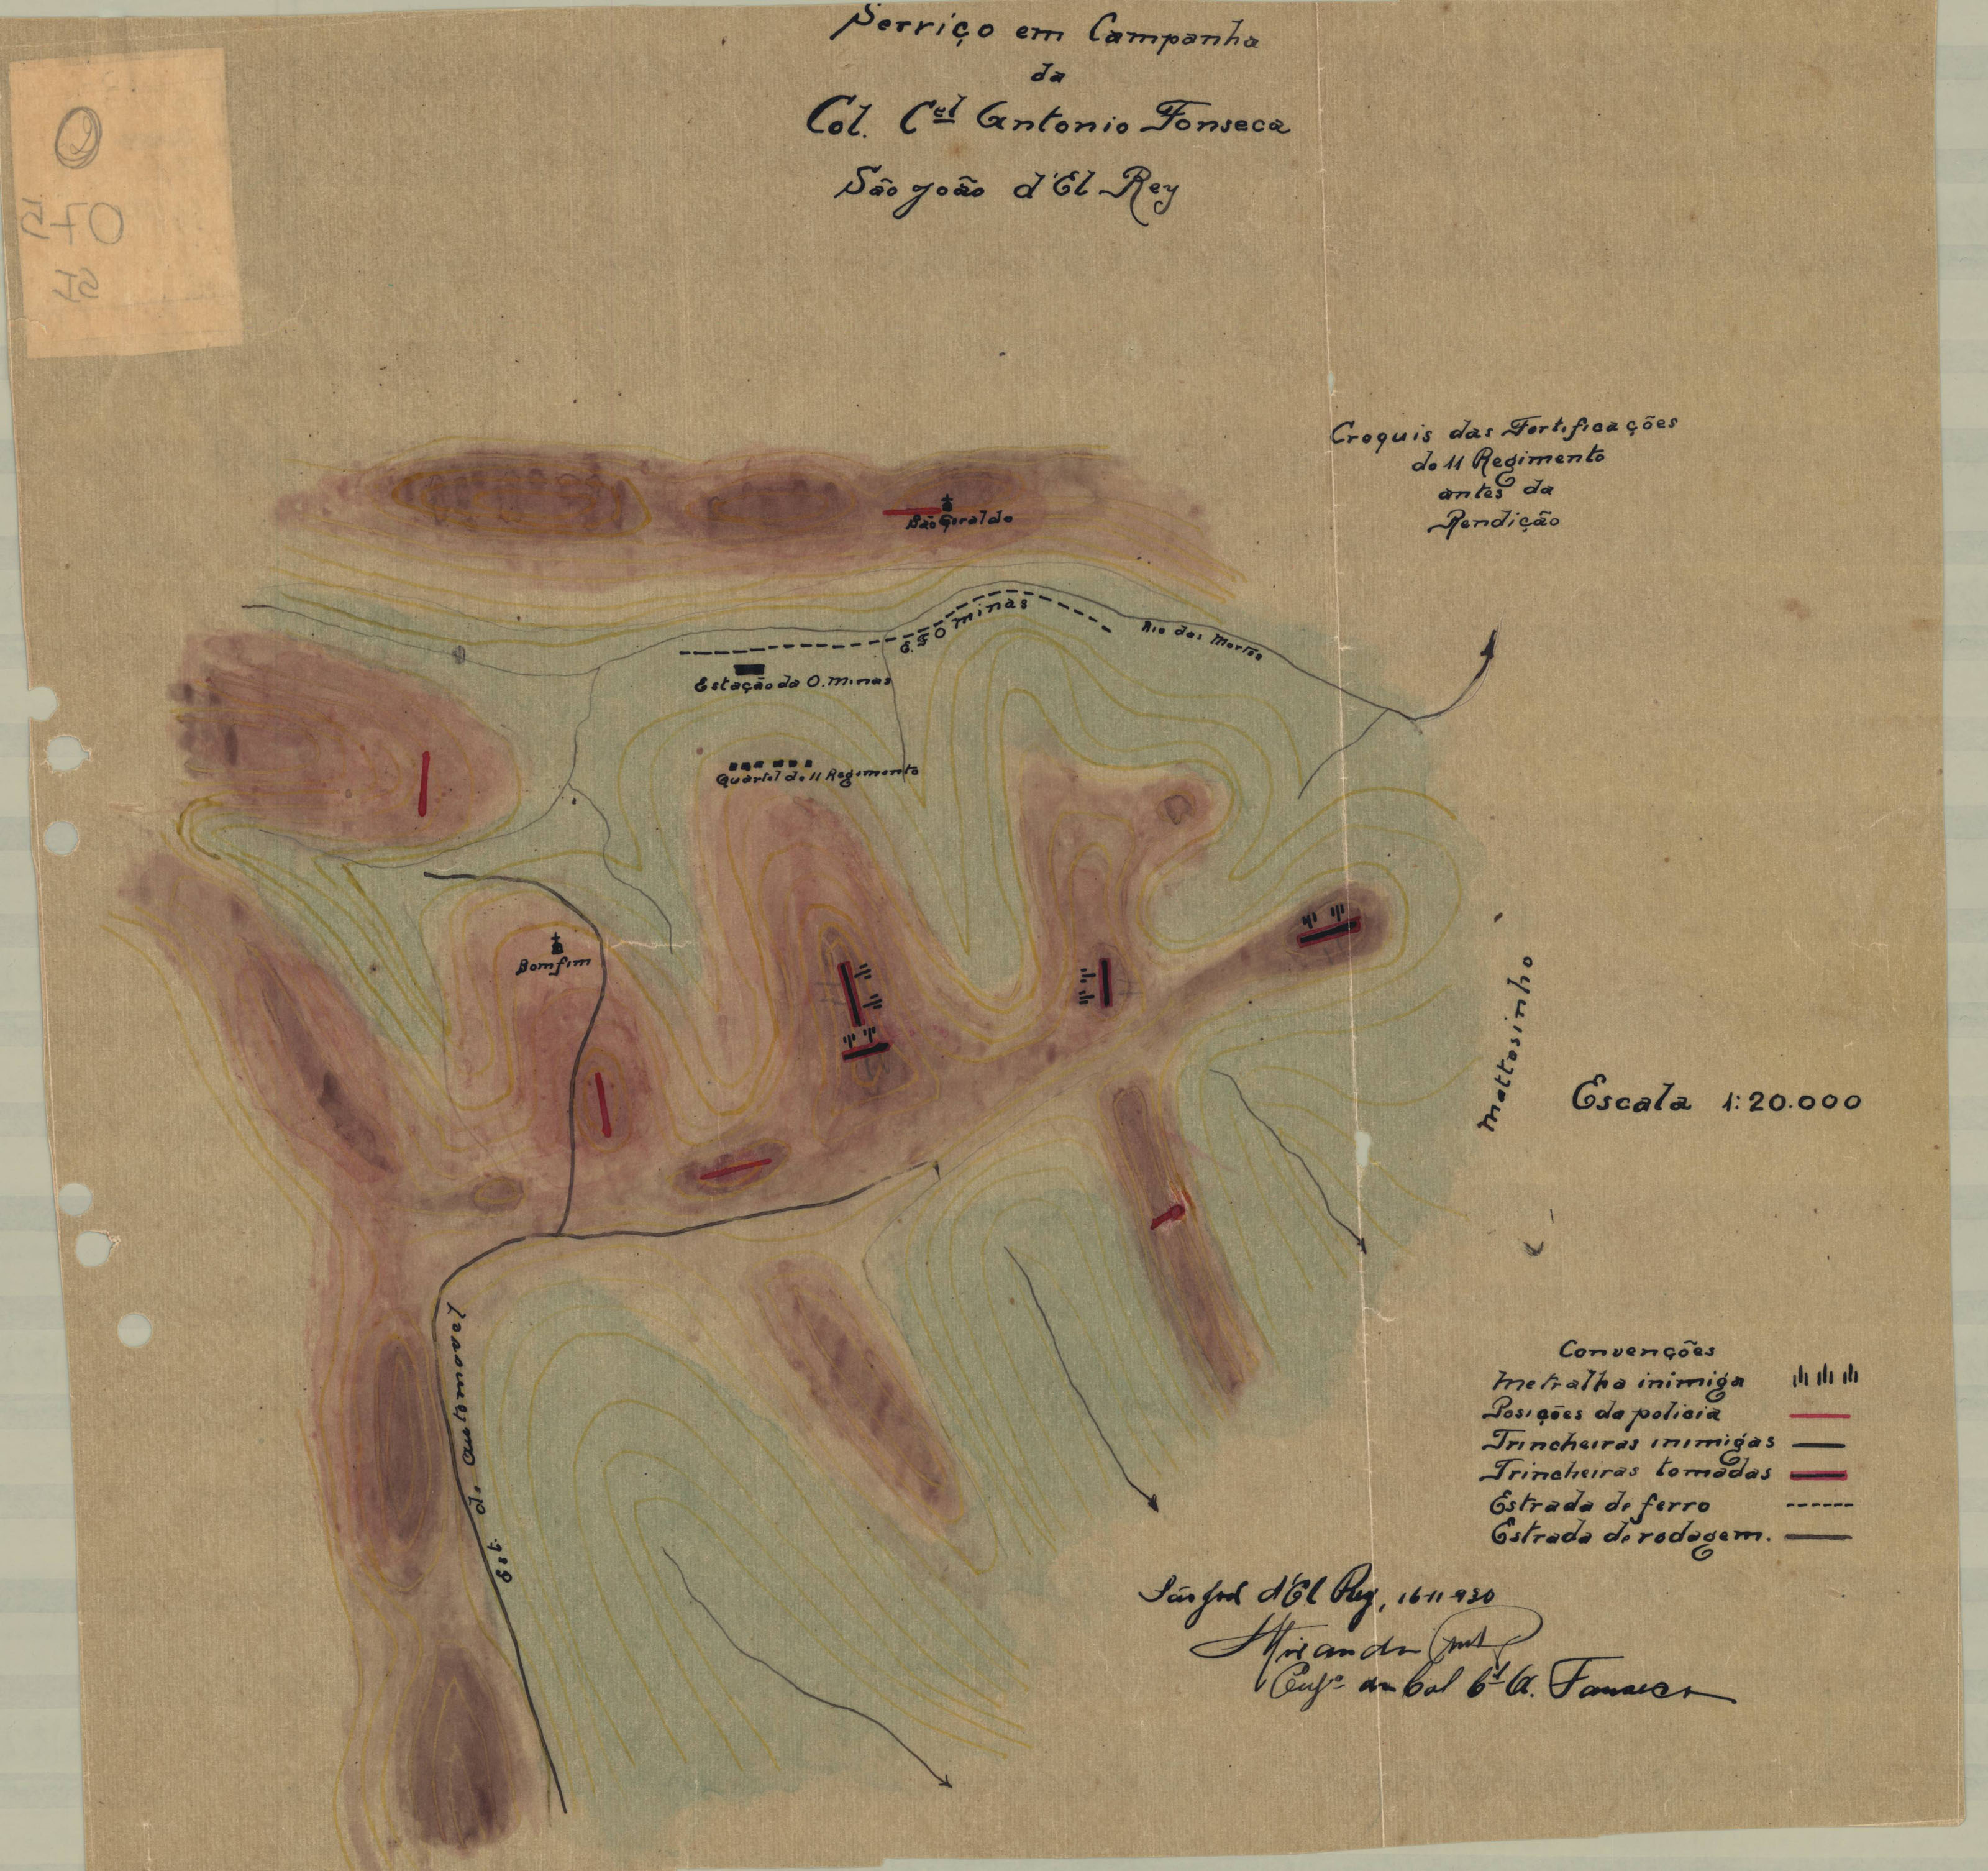 Serviço em Campanha
da
Col. Cel Antonio Fonseca
São João d'El Rey
Croquis das Fortificações
do 11 Regimento
antes da
Rendição
São Geraldo
E. F. O Minas
Rio das Mortes
Estação da O. Minas
Quartel do 11 Regimento
Bomfim
Mattosinho
Escala 1:20.000
Est. de Automovel
Convenções
Metralha inimiga
Posições da policia
Trincheiras inimigas
Trincheiras tomadas
Estrada de ferro
Estrada de rodagem.
d'El Rey, 16-11-930
Miranda
Col Cel A. Fonseca